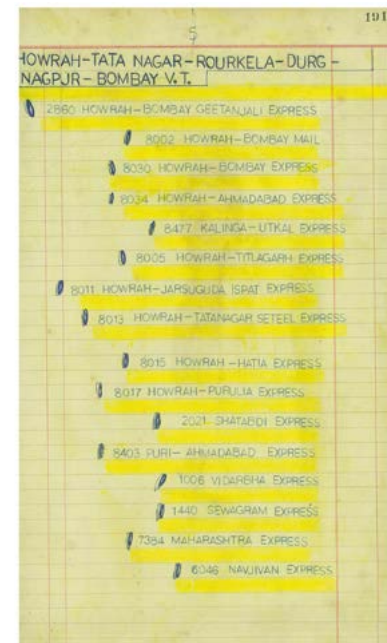 191
5
HOWRAH-TATA NAGAR-ROURKELA-DURG-
NAGPUR-BOMBAY V.T.
2860 HOWRAH-BOMBAY GEETANJALI EXPRESS
8002 HOWRAH-BOMBAY MAIL
8030 HOWRAH-BOMBAY EXPRESS
8034 HOWRAH-AHMADABAD EXPRESS
8477 KALINGA-UTKAL EXPRESS
8005 HOWRAH-TITLAGARH EXPRESS
8011 HOWRAH-JARSUGUDA ISPAT EXPRESS
8013 HOWRAH-TATANAGAR SETEEL EXPRESS
8015 HOWRAH-HATIA EXPRESS
8017 HOWRAH-PURULIA EXPRESS
2021 SHATABDI EXPRESS
8403 PURI-AHMADABAD EXPRESS
1006 VIDARBHA EXPRESS
1440 SEWAGRAM EXPRESS
7384 MAHARASHTRA EXPRESS
6046 NAVJIVAN EXPRESS